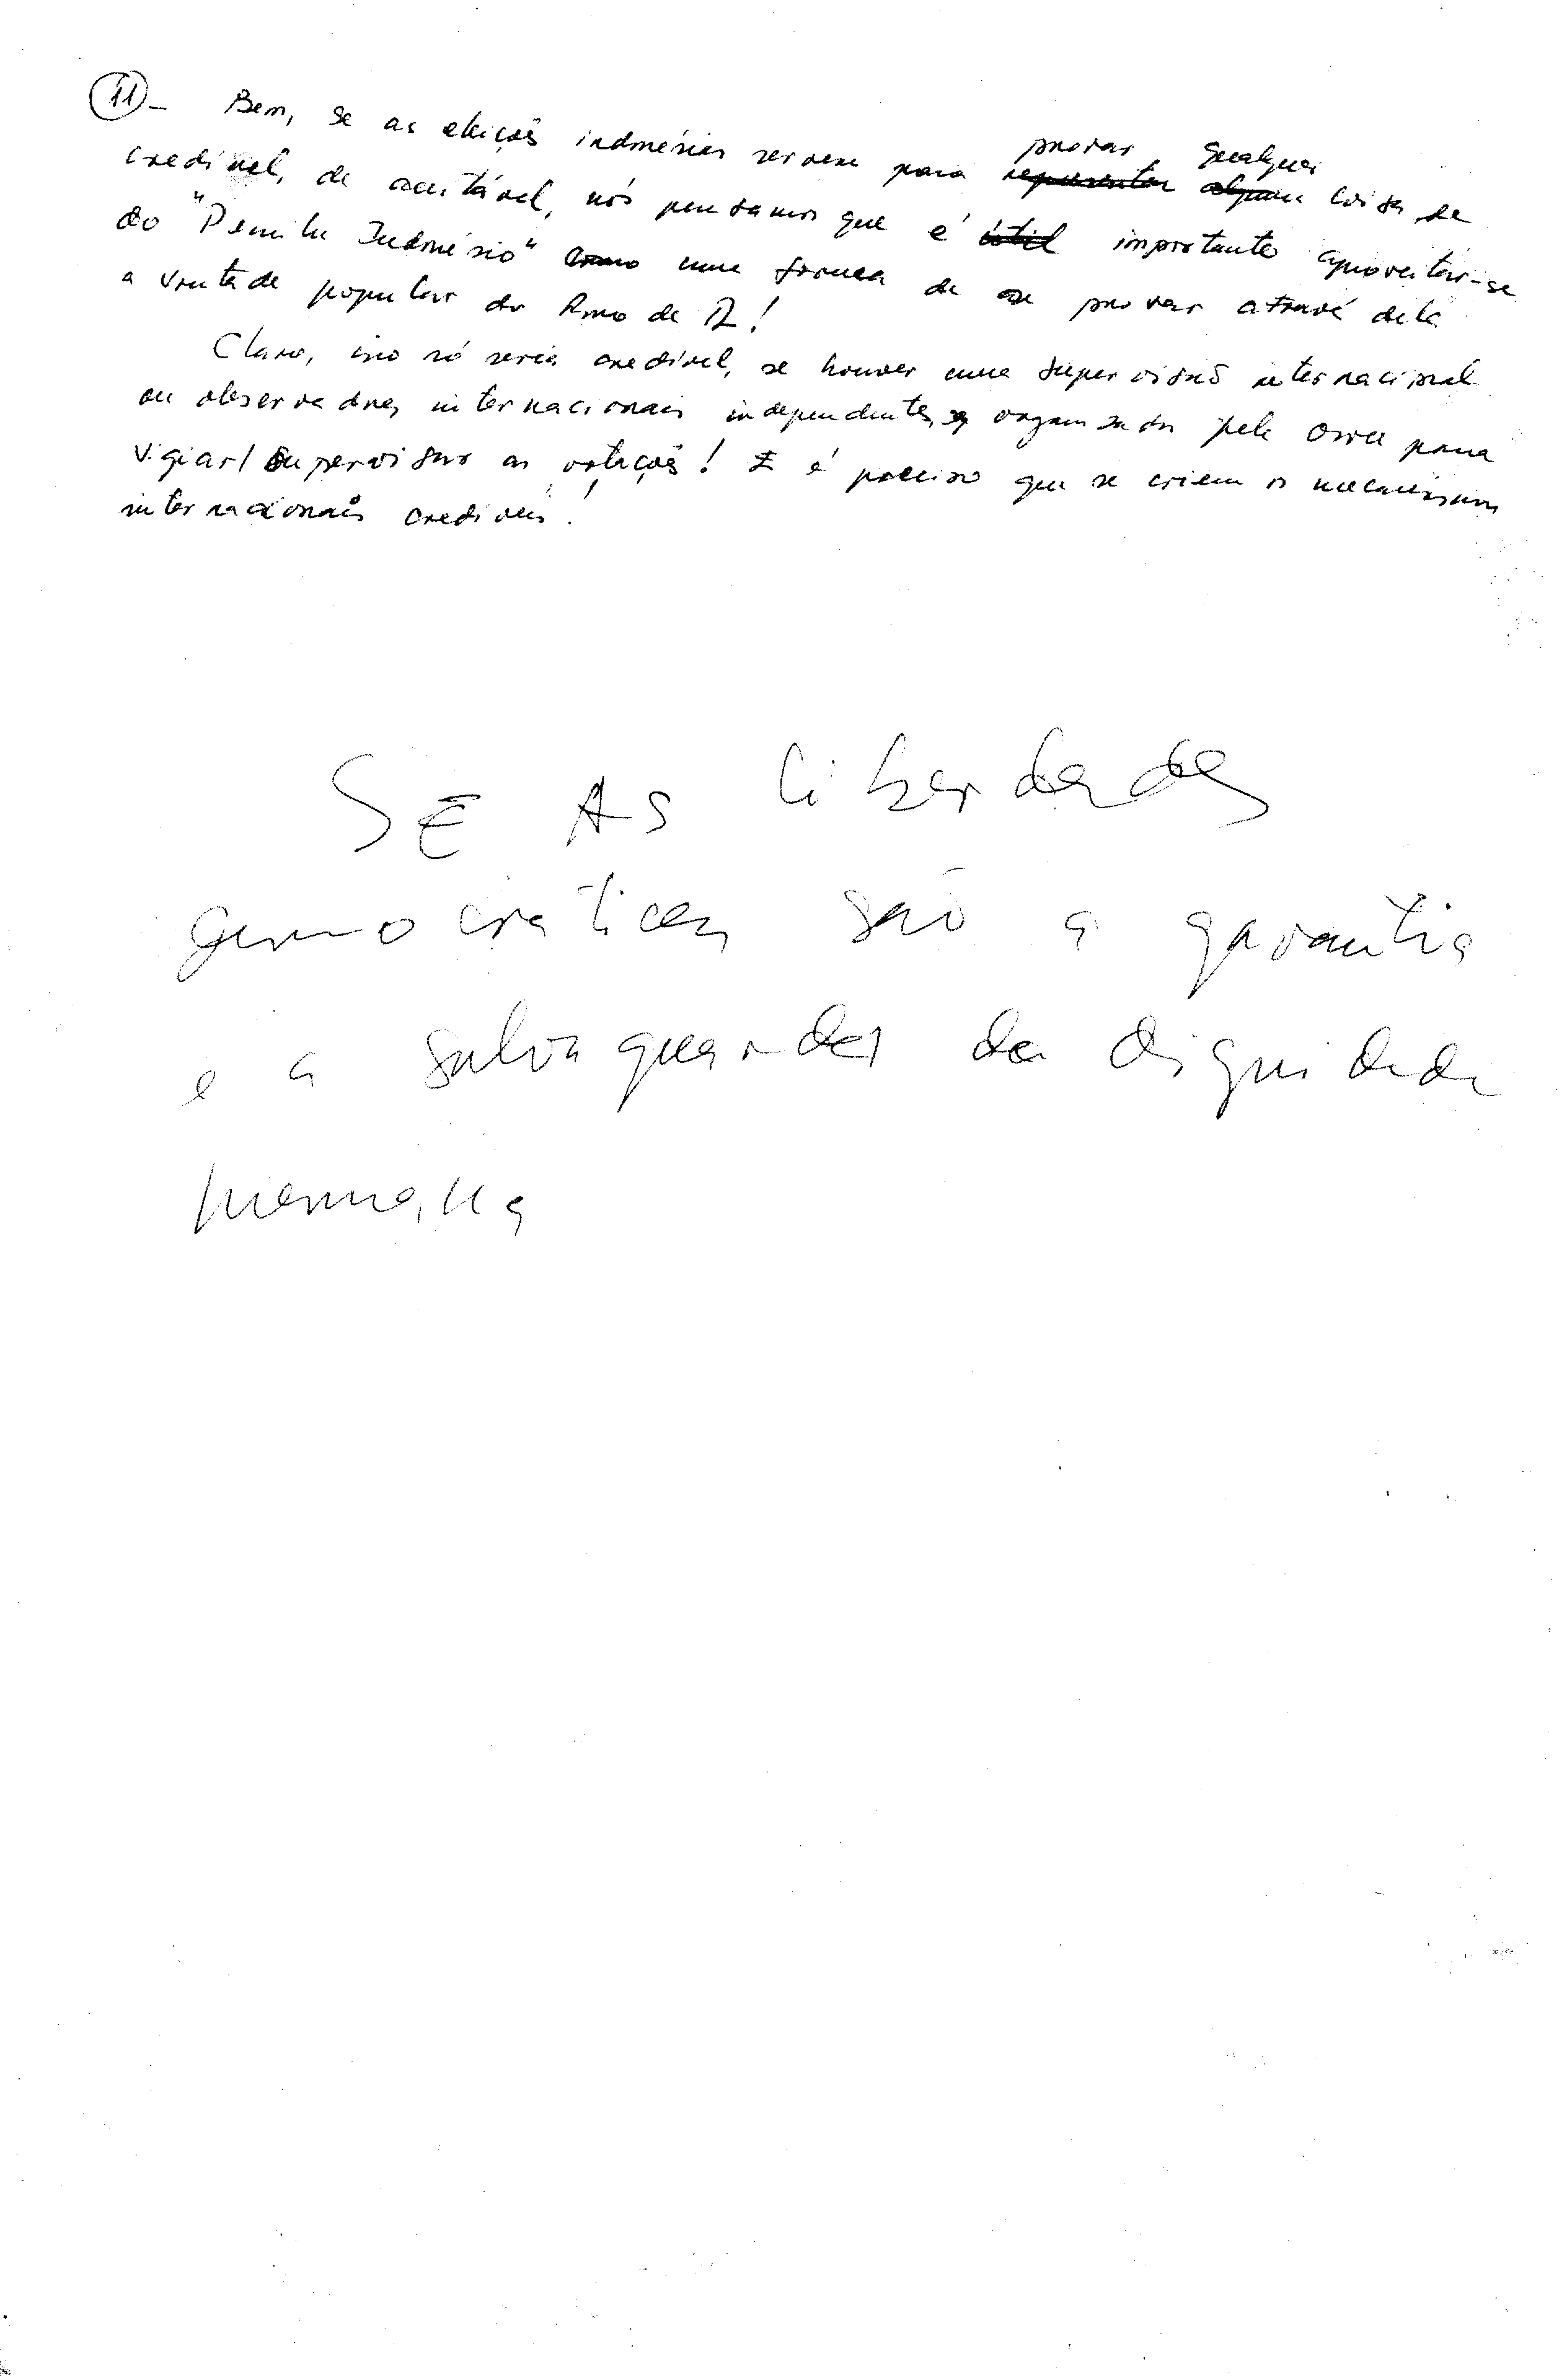 11 - Bem, se as eleições indonésias servem para provar qualquer coisa de
credível, de aceitável, nós pensamos que é importante aproveitar-se
do "Pemilu Indonésio" uma forma de se provar através dele
a vontade popular do Povo de
Claro, isso só seria credível, se houver uma supervisão internacional
ou observadores internacionais independentes, organizados pela para
vigiar/supervisar as votações! E é preciso que se criem os mecanismos
internacionais credíveis!
SE AS liberdades
democráticas são a garantia
e a salvaguarda da dignidade
humana